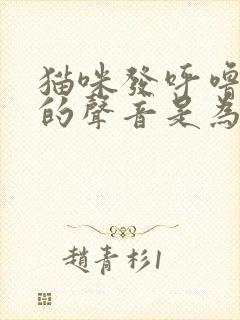 猫咪發呼嚕
的聲音是為
趙青杉1